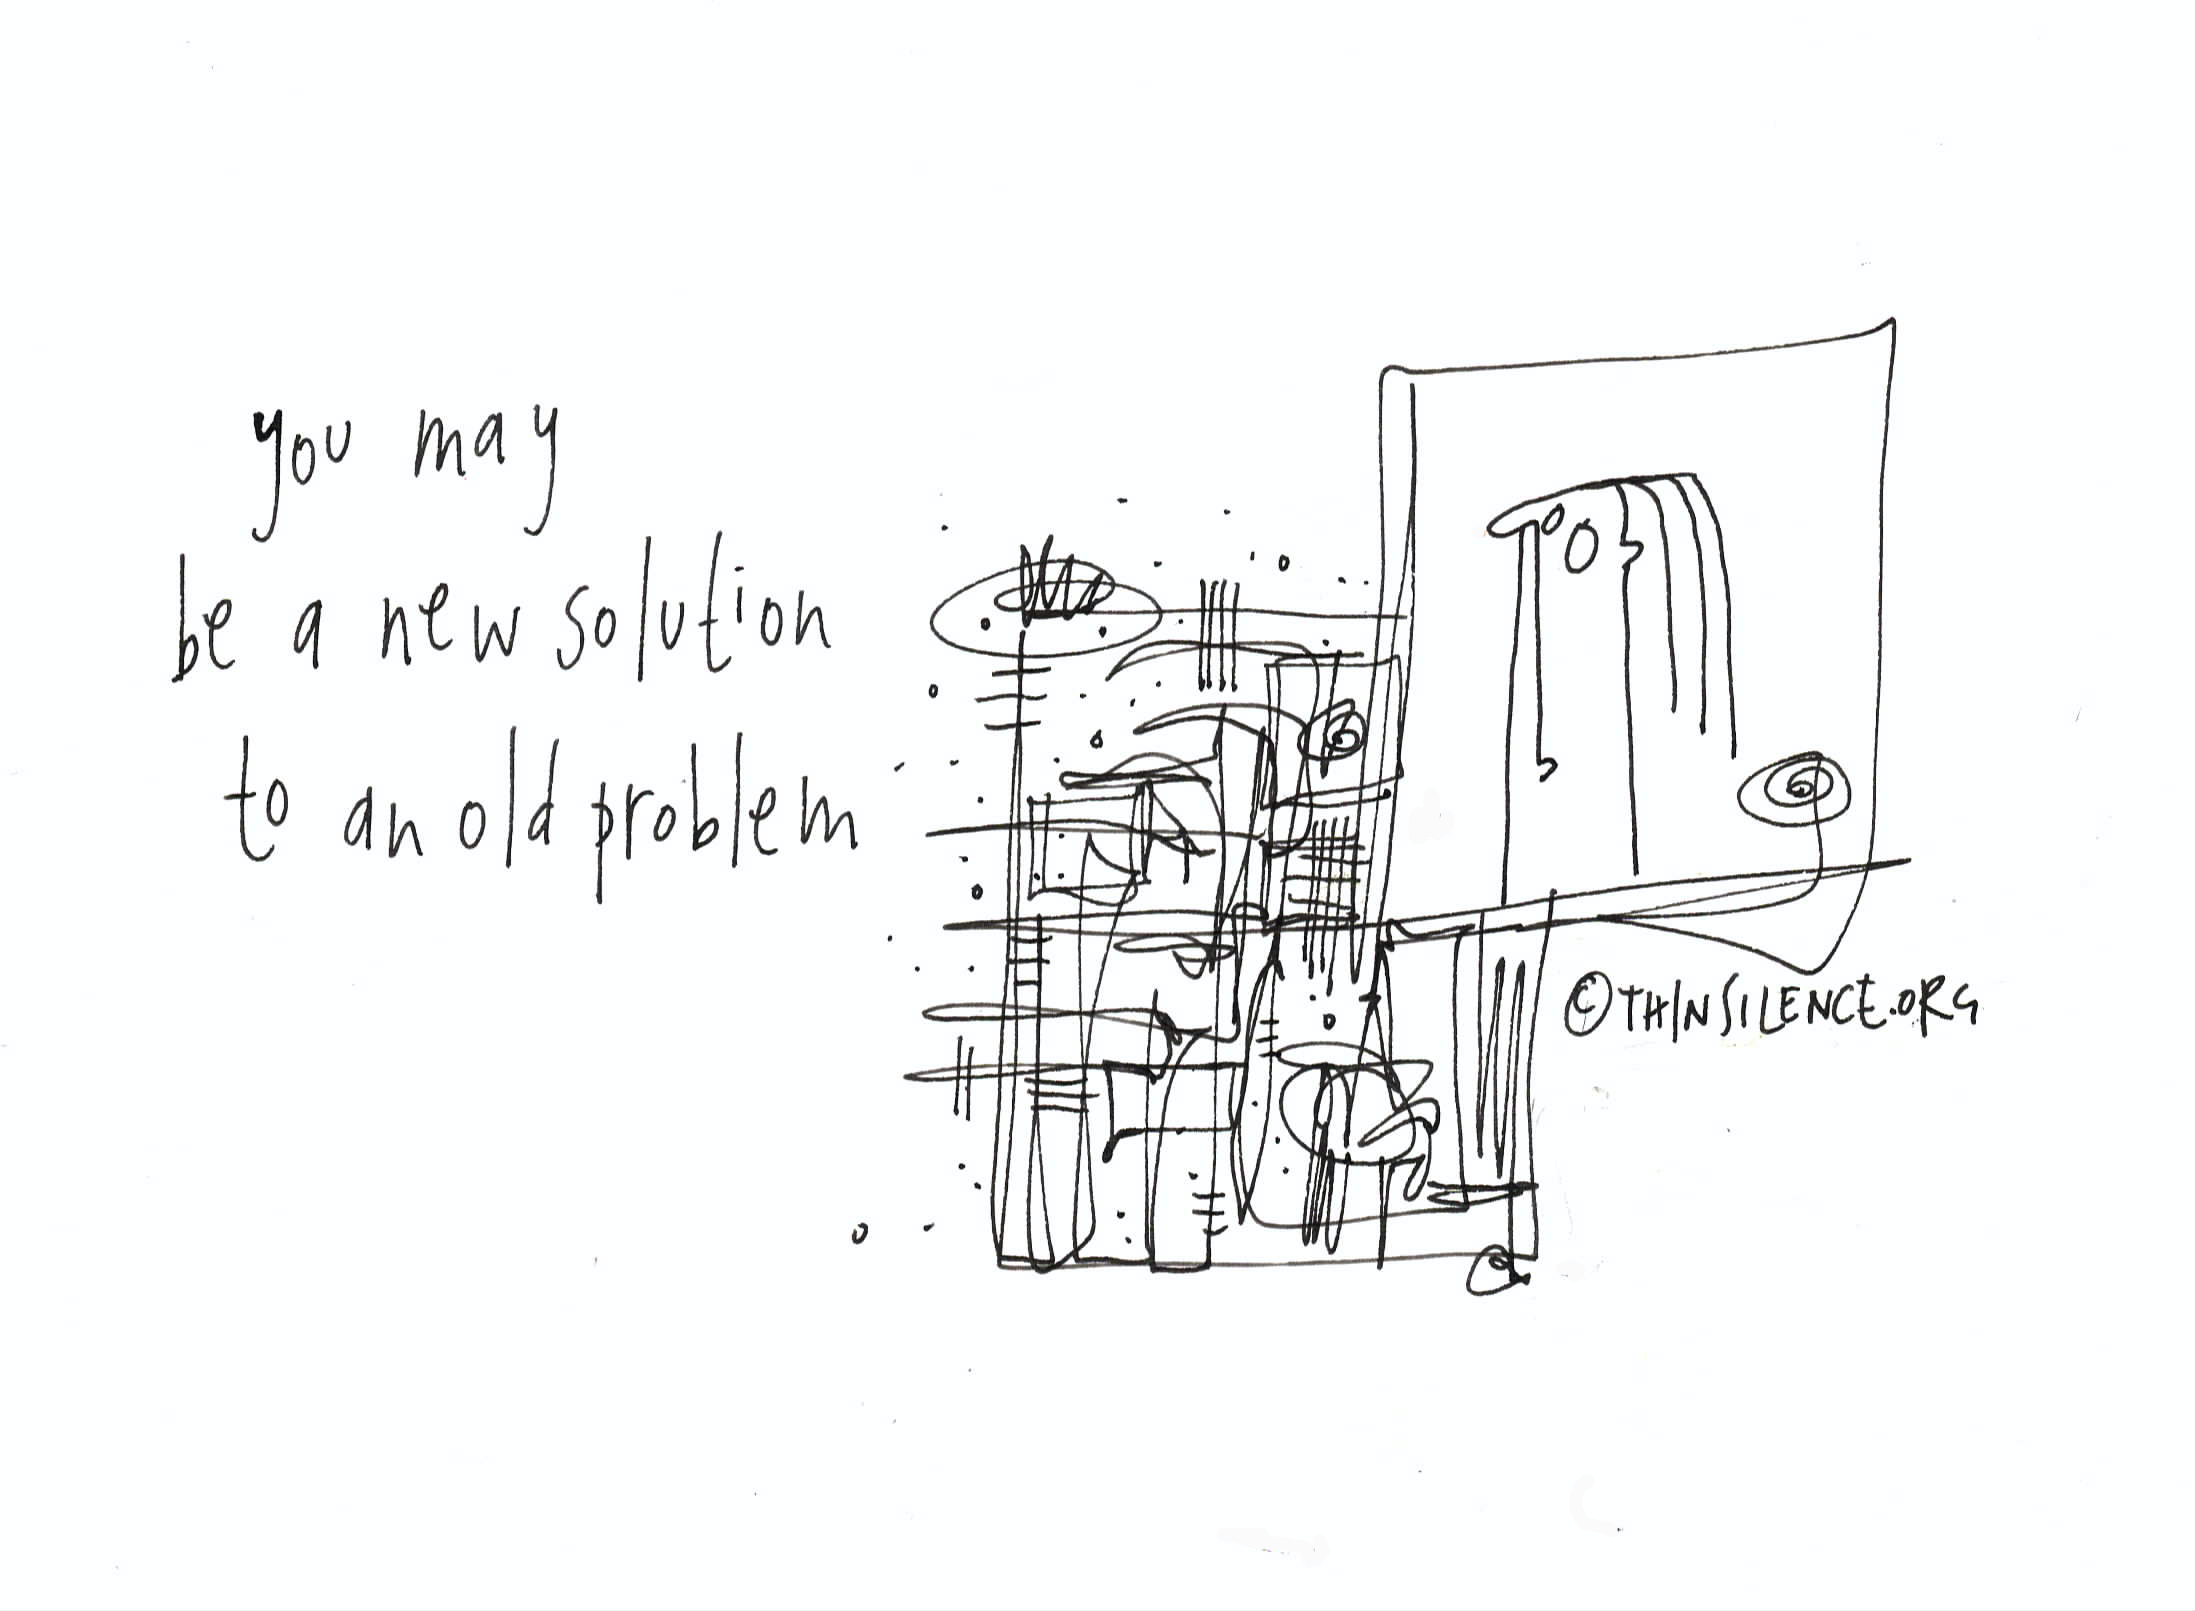 you may
be a new solution
to an old problem
©THINSILENCE.ORG